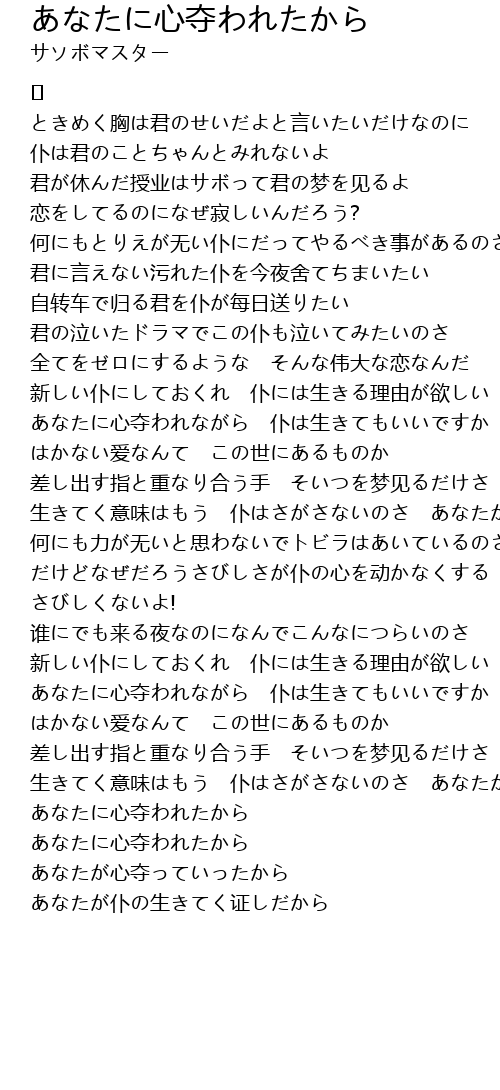 あなたに心夺われたから
サソボマスター
ときめく胸は君のせいだよと言いたいだけなのに
仆は君のことちゃんとみれないよ
君が休んだ授业はサボって君の梦を见るよ
恋をしてるのになぜ寂しいんだろう?
何にもとりえが无い仆にだってやるべき事があるのさ
君に言えない污れた仆を今夜舍てちまいたい
自转车で归る君を仆が每日送りたい
君の泣いたドラマでこの仆も泣いてみたいのさ
全てをゼロにするような　そんな伟大な恋なんだ
新しい仆にしておくれ　仆には生きる理由が欲しい
あなたに心夺われながら　仆は生きてもいいですか
はかない爱なんて　この世にあるものか
差し出す指と重なり合う手　そいつを梦见るだけさ
生きてく意味はもう　仆はさがさないのさ　あなたが
何にも力が无いと思わないでトビラはあいているのさ
だけどなぜだろうさびしさが仆の心を动かなくする
さびしくないよ!
谁にでも来る夜なのになんでこんなにつらいのさ
新しい仆にしておくれ　仆には生きる理由が欲しい
あなたに心夺われながら　仆は生きてもいいですか
はかない爱なんて　この世にあるものか
差し出す指と重なり合う手　そいつを梦见るだけさ
生きてく意味はもう　仆はさがさないのさ　あなたが
あなたに心夺われたから
あなたに心夺われたから
あなたが心夺っていったから
あなたが仆の生きてく证しだから